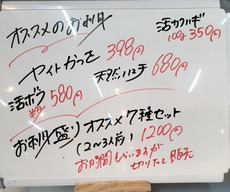 オススメのお刺身
活カワハギ
100g 350円
ヤイトかつを 398円
天然ハマチ 680円
活ボラ
580円
お刺身盛り オススメ7種セット
(2〜3人前) 1200円
お時間もらいますが
切りたて販売